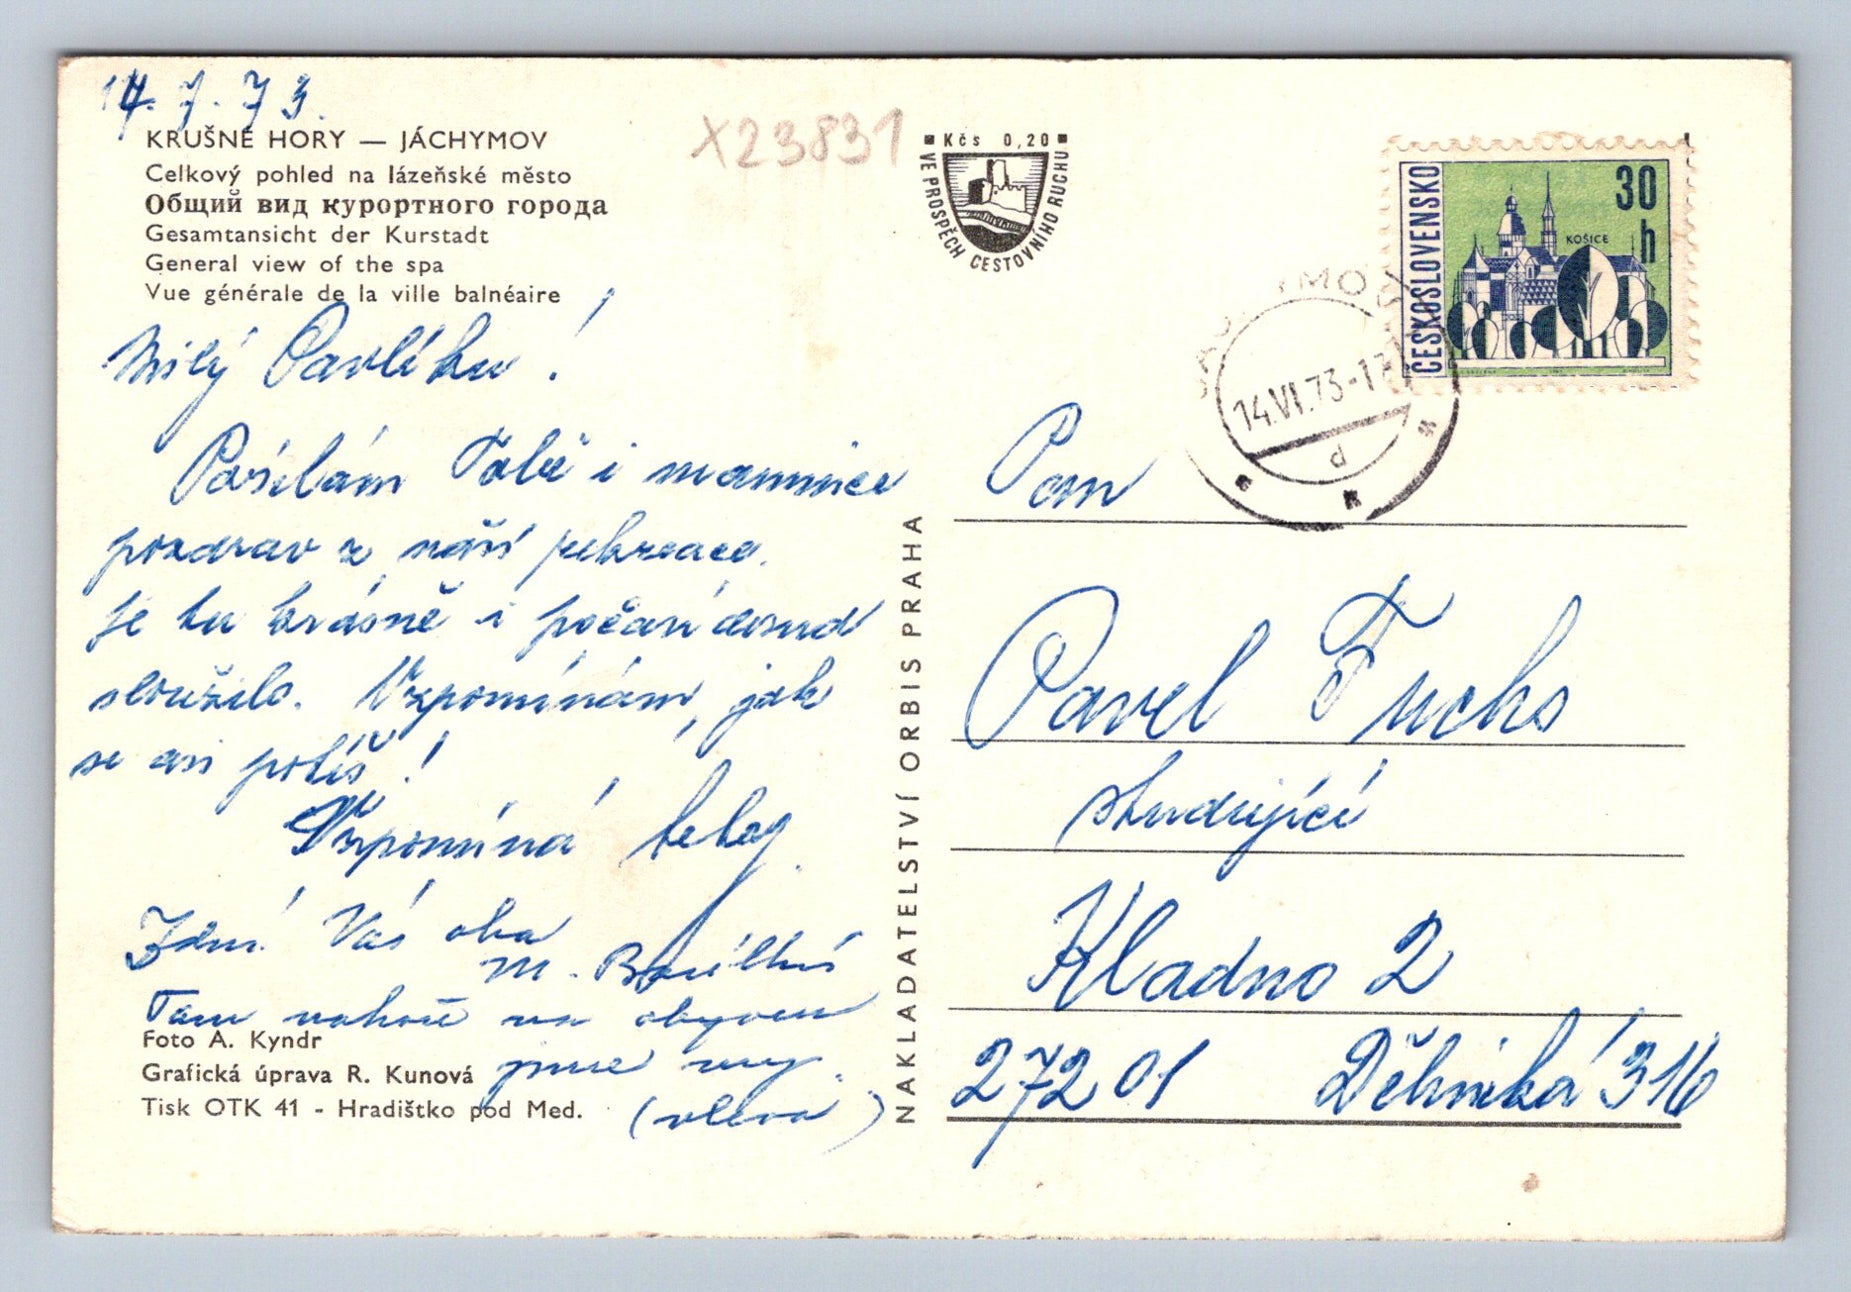 14. 7. 73.
KRUŠNÉ HORY — JÁCHYMOV
Celkový pohled na lázeňské město
Общий вид курортного города
Gesamtansicht der Kurstadt
General view of the spa
Vue générale de la ville balnéaire
X23831
Kčs 0,20
VE PROSPĚCH CESTOVNÍHO RUCHU
ČESKOSLOVENSKO
30 h
KOŠICE
14.VI.73-1
d
Milý Pavlíku!
Posílám Tobě i mamince
pozdrav z naší rekreace.
Je tu krásně i počasí dosud
sloužilo. Vzpomínám, jak
se asi potíš!
Vzpomíná
Zdraví Vás oba
M.
Tam nahoře na obzoru
jsme my.
(vlevo)
Foto A. Kyndr
Grafická úprava R. Kunová
Tisk OTK 41 - Hradištko pod Med.
NAKLADATELSTVÍ ORBIS PRAHA
Pan
Pavel Fuchs
studující
Kladno 2
272 01 Dělnická 316